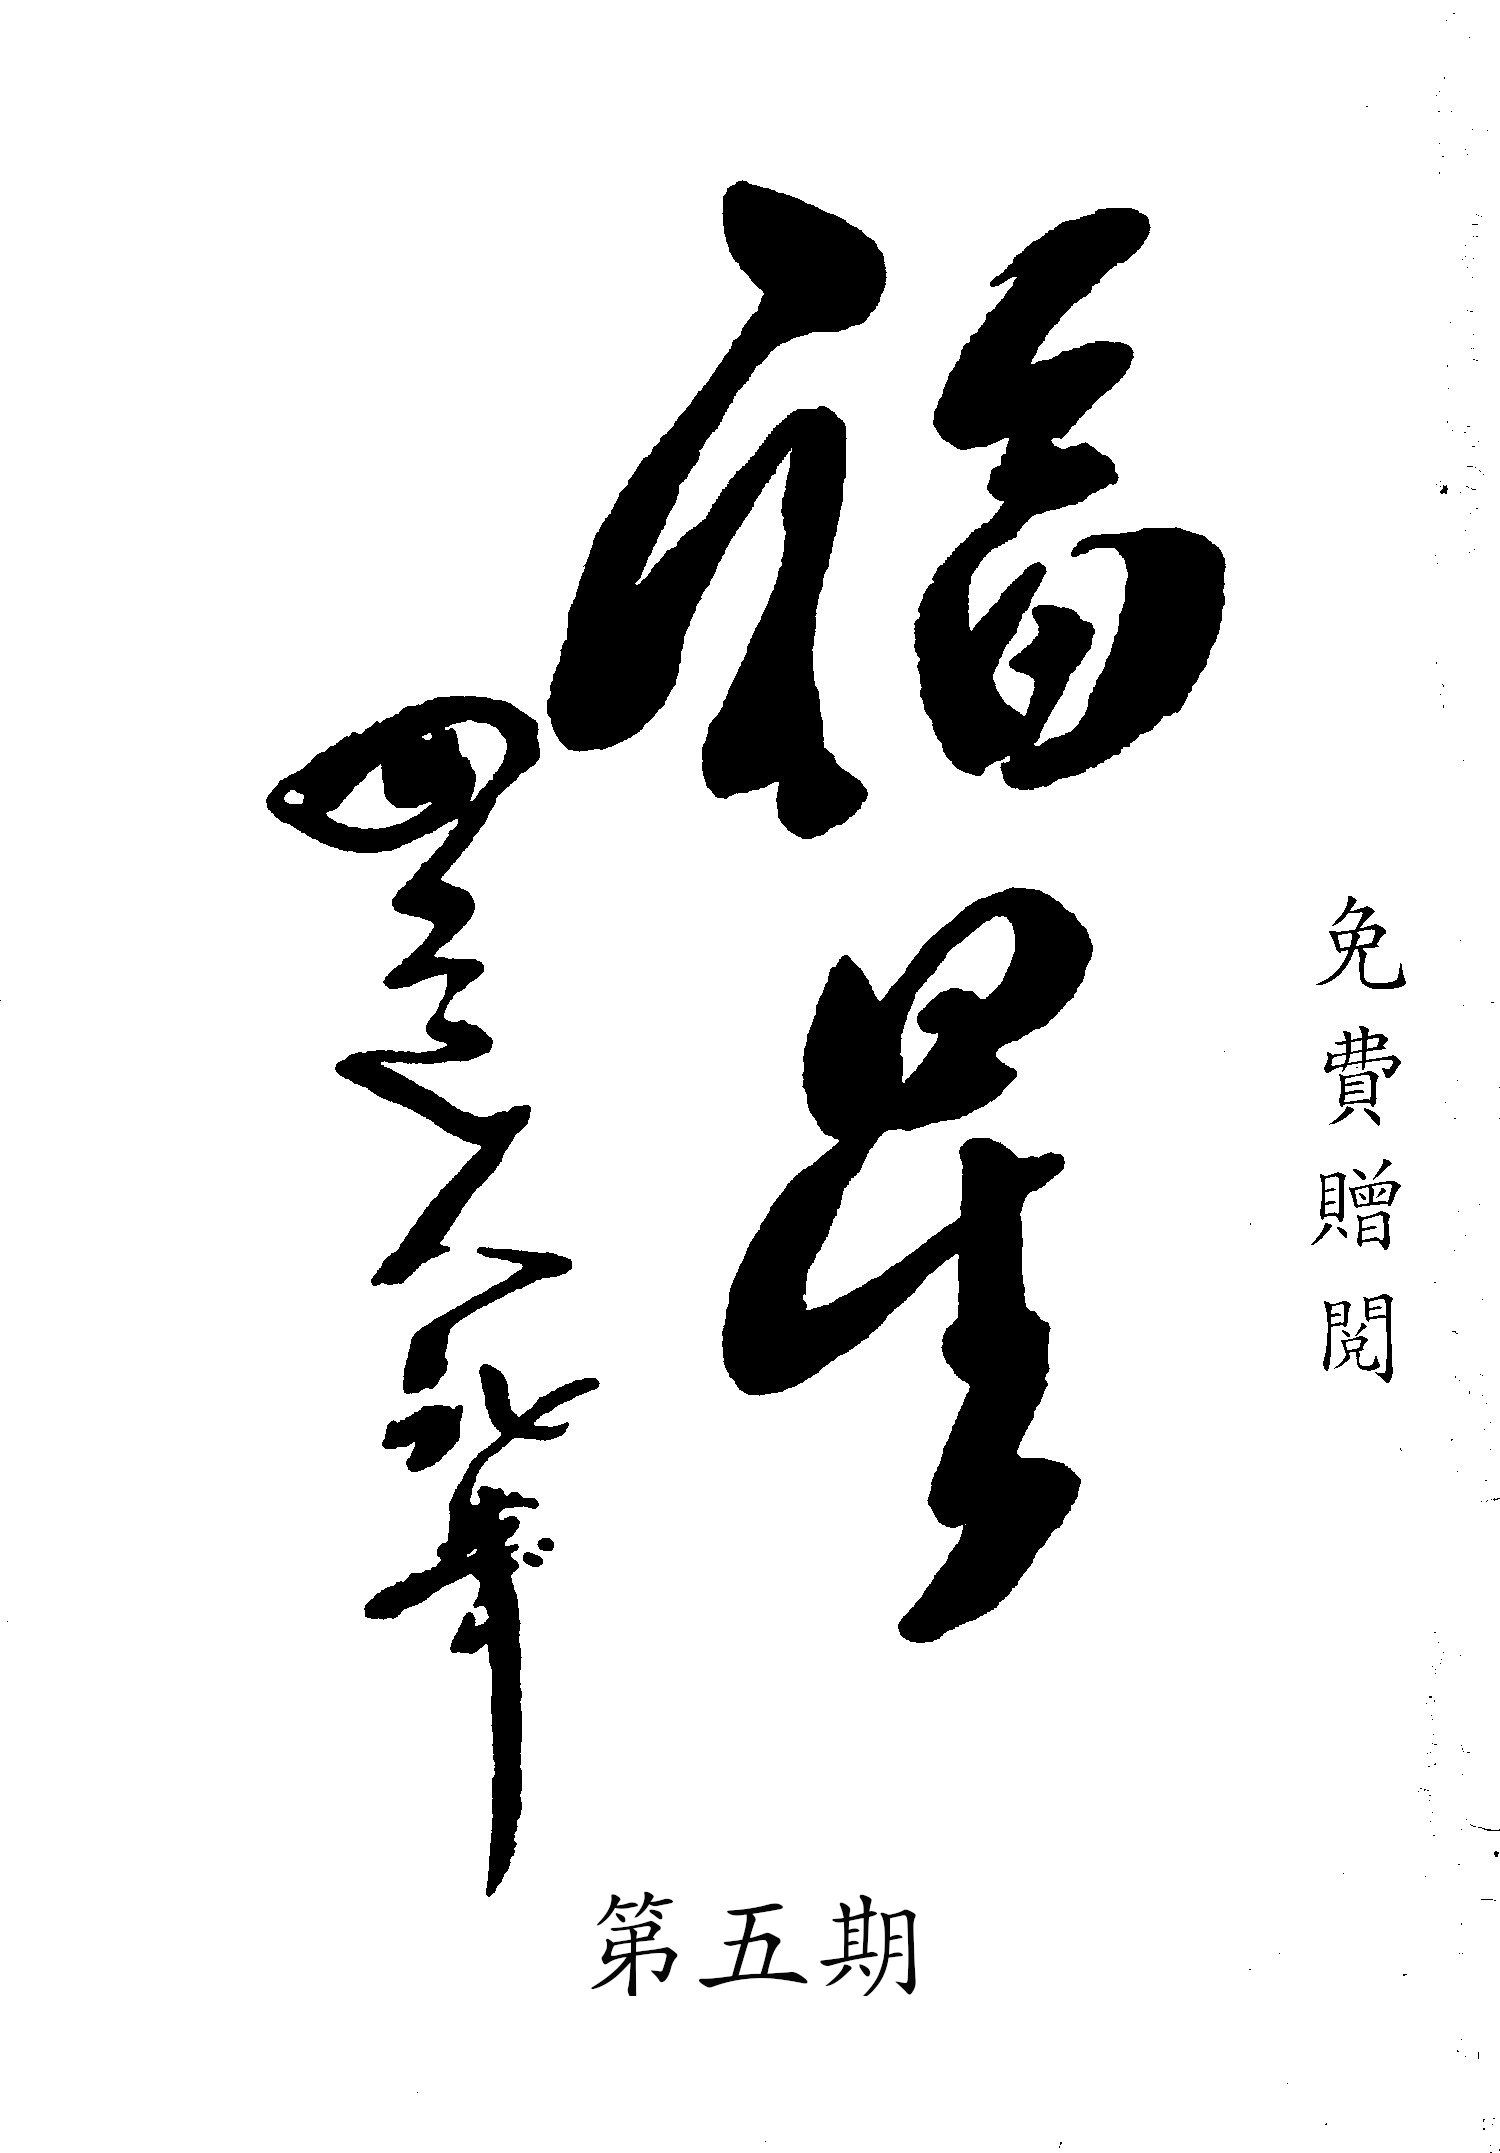 免費贈閱
福星
第五期